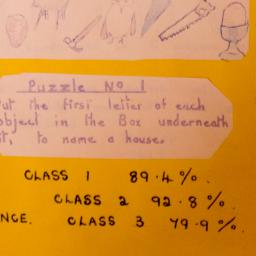 Puzzle No 1
Put the first letter of each
object in the Box underneath
it, to name a house.
CLASS 1 89.4%.
CLASS 2 92.8%.
NCE. CLASS 3 79.9%.